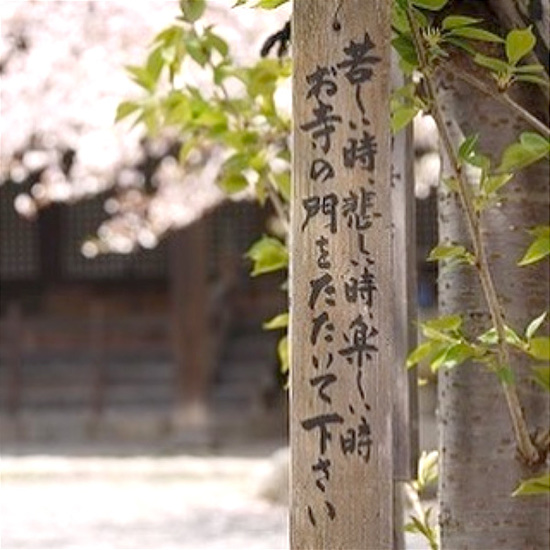 苦しい時悲しい時楽しい時
お寺の門をたたいて下さい